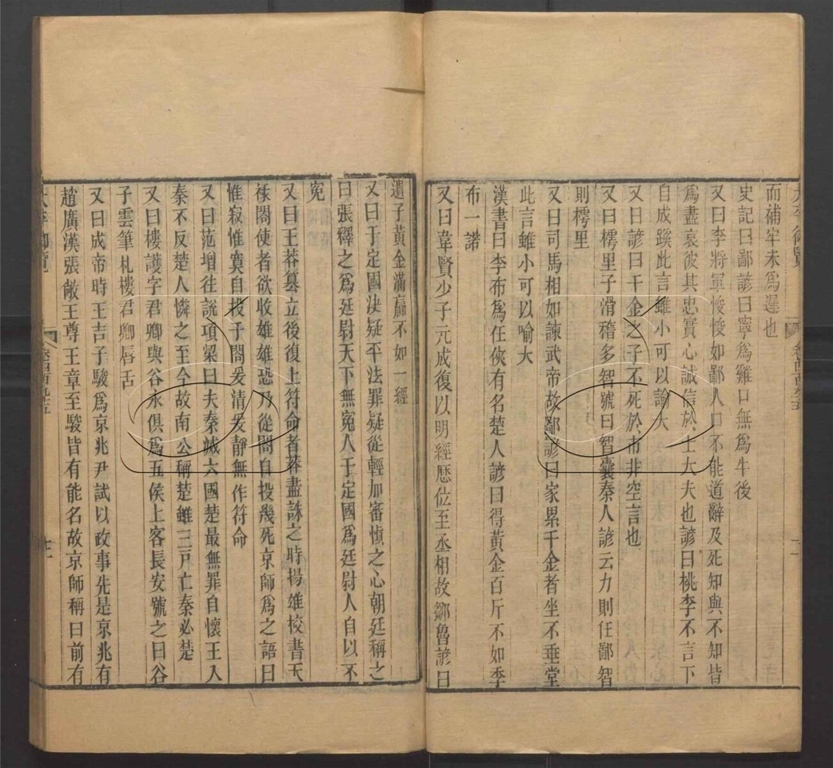 而補牢未為遲也
史記曰鄙諺曰寧為雞口無為牛後
又曰李將軍悛悛如鄙人口不能道辭及死知與不知皆
為盡哀彼其忠實心誠信於士大夫也諺曰桃李不言下
自成蹊此言雖小可以諭大
又曰諺曰千金之子不死於市非空言也
又曰樗里子滑稽多智號曰智囊秦人諺云力則任鄙智
則樗里
又曰司馬相如諫武帝故鄙諺曰家累千金者坐不垂堂
此言雖小可以喻大
漢書曰季布為任俠有名楚人諺曰得黃金百斤不如季
布一諾
又曰韋賢少子元成復以明經歷位至丞相故鄒魯諺曰
遺子黃金滿籯不如一經
又曰于定國決疑平法罪疑從輕加審慎之心朝廷稱之
曰張釋之為廷尉天下無冤人于定國為廷尉人自以不
冤
又曰王莽篡立後復上符命者莽盡誅之時揚雄校書天
祿閣使者欲收雄雄恐乃從閣自投幾死京師為之語曰
惟寂惟寞自投于閣爰清爰靜無作符命
又曰范增往說項梁曰夫秦滅六國楚最無罪自懷王入
秦不反楚人憐之至今故南公稱楚雖三戶亡秦必楚
又曰樓護字君卿與谷永俱為五侯上客長安號之曰谷
子雲筆札樓君卿唇舌
又曰成帝時王吉子駿為京兆尹試以政事先是京兆有
趙廣漢張敞王尊王章至駿皆有能名故京師稱曰前有